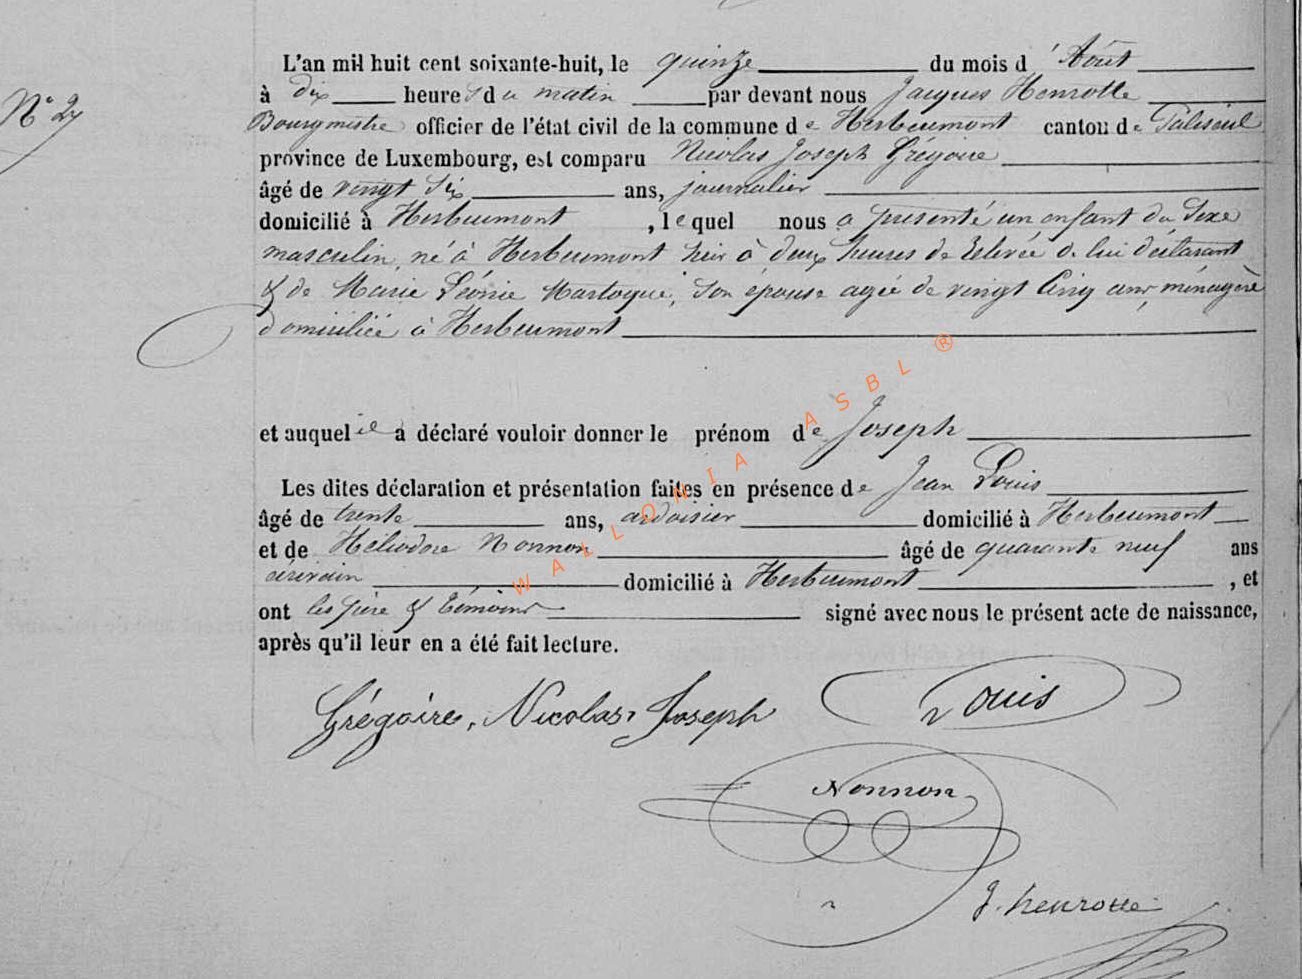 L'an mil huit cent soixante-huit, le quinze du mois d'Août
à dix heures du matin par devant nous Jacques Henrotte
N° 27
Bourgmestre officier de l'état civil de la commune de Herbeumont canton de Paliseul
province de Luxembourg, est comparu Nicolas Joseph Grégoire
âgé de vingt six ans, journalier
domicilié à Herbeumont, lequel nous a présenté un enfant du sexe
masculin, né à Herbeumont hier à deux heures de relevée de lui déclarant
& de Marie Léonie, son épouse agée de vingt cinq ans, ménagère
domiciliée à Herbeumont
et auquel il a déclaré vouloir donner le prénom de Joseph
Les dites déclaration et présentation faites en présence de Jean Louis
âgé de trente ans, ardoisier domicilié à Herbeumont
et de Héliodore Nonnon âgé de quarante neuf ans
écrivain domicilié à Herbeumont, et
ont les père & témoins signé avec nous le présent acte de naissance,
après qu'il leur en a été fait lecture.
Grégoire, Nicolas, Joseph Louis
Nonnon
J. henrotte
WALLONIA ASBL ®